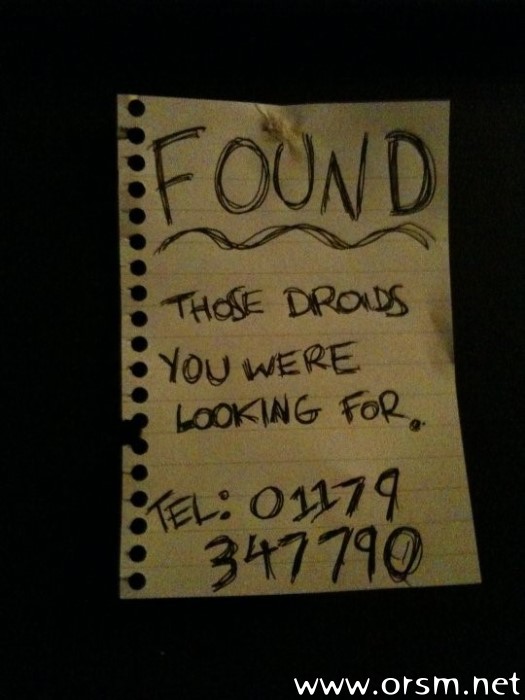 FOUND
THOSE DROIDS
YOU WERE
LOOKING FOR.
TEL: 01179
347790
www.orsm.net